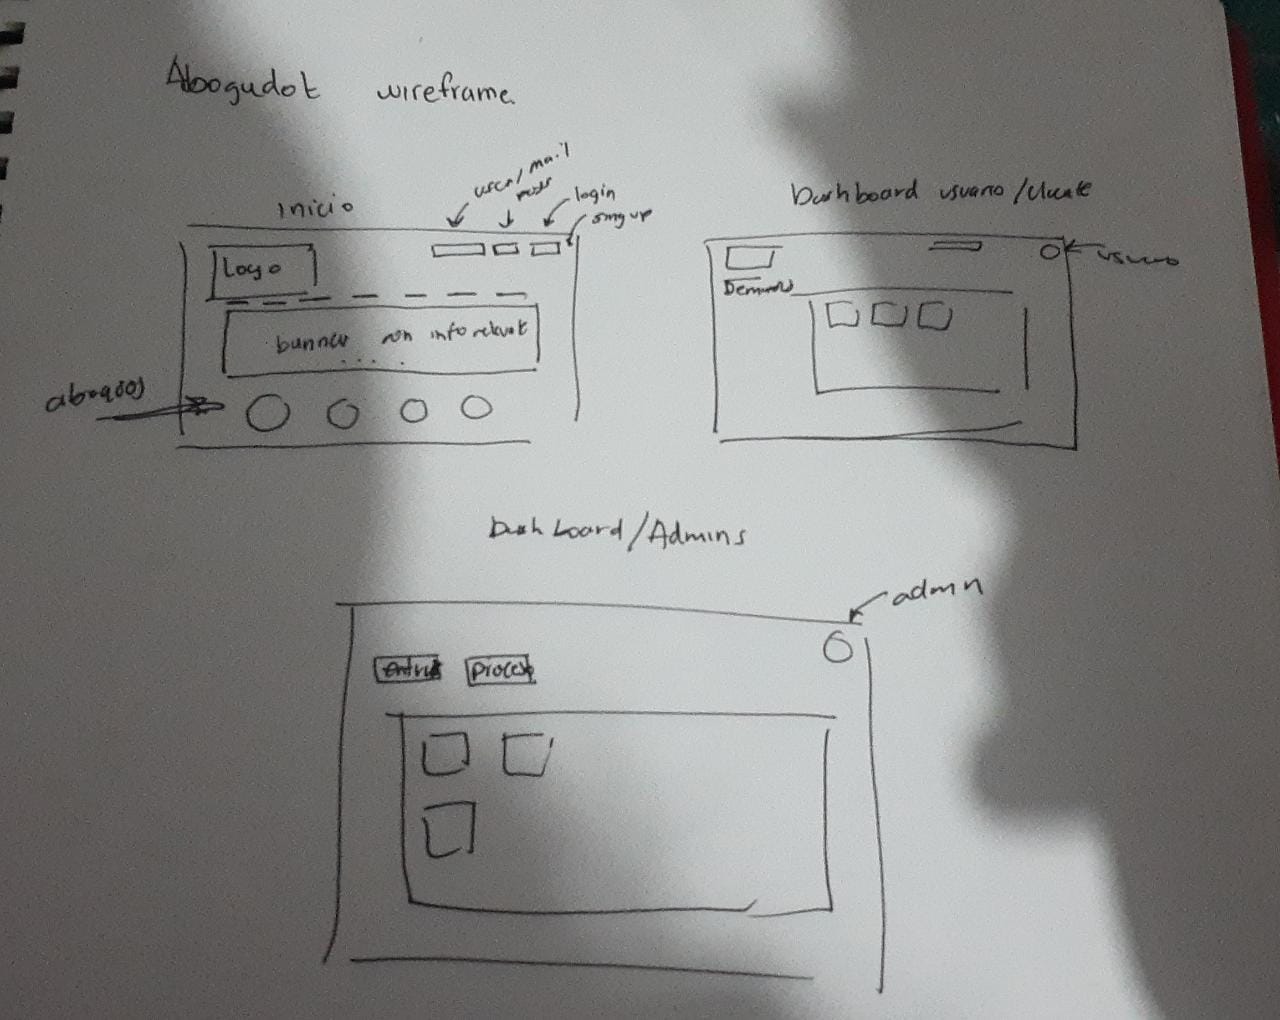 Abogudot wireframe
inicio
user/mail
pass
login
sing up
Logo
banner con info relevant
abogados
Dashboard usuario/cliente
usuario
Demandas
Dashboard/Admins
admin